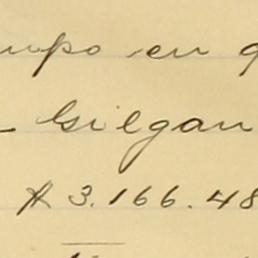 mpo en
Gilgan
A 3.166.48